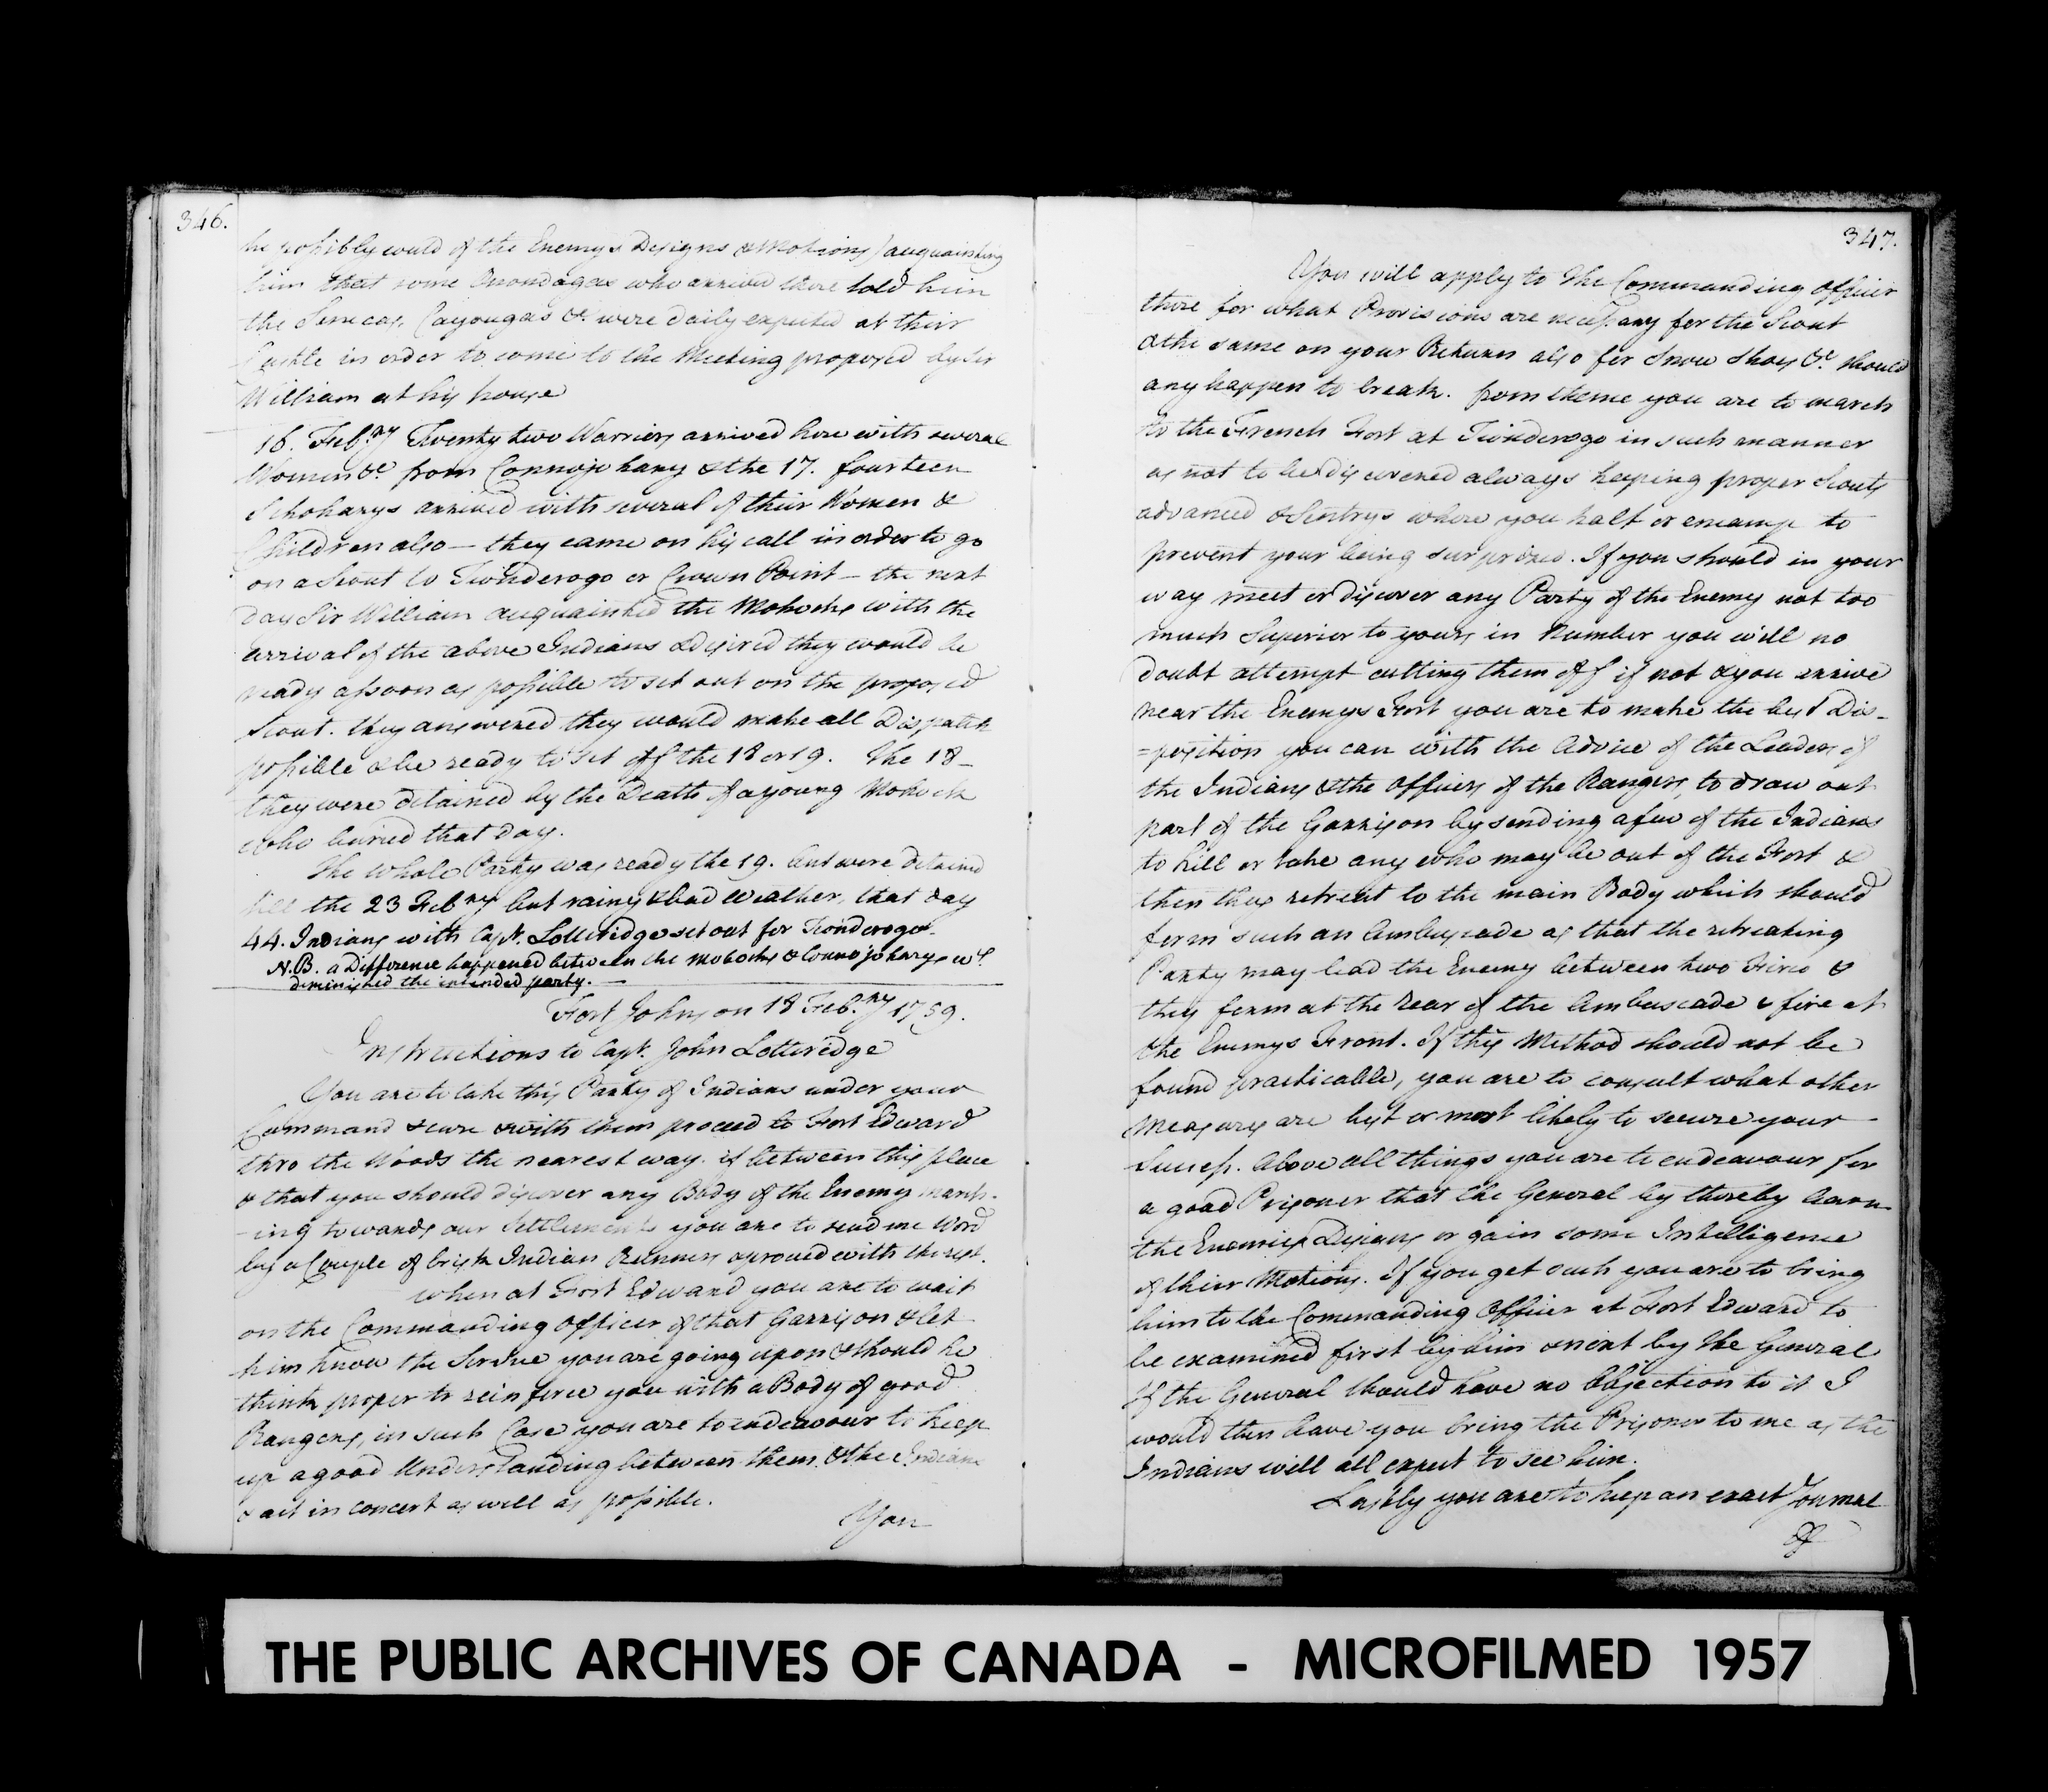 346.
he possibly could of the Enemys Designs & Motions) acquainting
him that some Onondagas who arrived there told him
the Senecas, Cayougas &c. were daily expected at their
Castle in order to come to the Meeting proposed by Sir
William at his house
16. Feb.ry Twenty two Warriors arrived here with several
Women &c from Connojohary & the 17. fourteen
Schoharys arrived with several of their Women &
Children also — they came on his call in order to go
on a Scout to Tionderogo or Crown Point — the next
day Sir William acquainted the Mohocks with the
arrival of the above Indians & desired they would be
ready as soon as possible to set out on the proposed
Scout. they answered they would make all Dispatch
possible & be ready to set off the 18 or 19. The 18 —
they were detained by the Death of a young Mohock
who buried that day.
The whole Party was ready the 19. but were detained
till the 23 Feb.ry but rainy & bad Weather, that day
44. Indians with Capt. Lotteridge set out for Tionderogo.
N.B. a Difference happened between the Mohocks & Connojoharys wc.
diminished the intended party. —
Fort Johnson 18 Feb.ry 1759.
Instructions to Capt. John Lotteridge
You are to take this Party of Indians under your
Command & care & with them proceed to Fort Edward
thro the Woods the nearest way. if between this place
& that you should discover any Body of the Enemy march-
-ing towards our Settlements you are to send me Word
by a Couple of brisk Indian Runners & proceed with the rest.
when at Fort Edward you are to wait
on the Commanding Officer of that Garrison & let
him know the Service you are going upon & should he
think proper to reinforce you with a Body of good
Rangers, in such Case you are to endeavour to keep
up a good Understanding between them & the Indians
& act in concert as well as possible.
You
347.
You will apply to the Commanding Officer
there for what Provisions are necessary for the Scout
& the same on your Return also for Snow Shoes &c. should
any happen to break. from thence you are to march
to the French Fort at Tionderogo in such manner
as not to be discovered always keeping proper Scouts
advanced & Sentrys where you halt or encamp to
prevent your being surprized. If you should in your
way meet or discover any Party of the Enemy not too
much Superior to yours in Number you will no
doubt attempt cutting them off if not & you arrive
near the Enemys Fort you are to make the best Dis-
=position you can with the Advice of the Leaders of
the Indians & the Officers of the Rangers, to draw out
part of the Garrison by sending a few of the Indians
to kill or take any who may be out of the Fort &
then they retreat to the main Body which should
form such an Ambuscade as that the retreating
Party may lead the Enemy between two Fires &
they form at the Rear of the Ambuscade & fire at
the Enemys Front. If this Method should not be
found practicable, you are to consult what other
Measures are best or most likely to secure your
Success. Above all things you are to endeavour for
a good Prisoner that the General by thereby learn
the Enemies Designs or gain some Intelligence
of their Motions. If you get such you are to bring
him to the Commanding Officer at Fort Edward to
be examined first by him & next by the General
If the General should have no Objection to it I
would then have you bring the Prisoner to me as the
Indians will all expect to see him.
Lastly you are to keep an exact Journal
of
THE PUBLIC ARCHIVES OF CANADA - MICROFILMED 1957